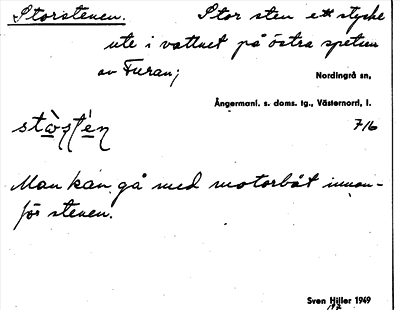 Storstenen. Stor sten ett stycke
ute i vattnet på östra spetsen
av Furan;
Nordingrå sn,
Ångermanl. s. doms. tg., Västernorrl. l.
7/6
Man kan gå med motorbåt innan-
för stenen.
Sven Hiller 1949